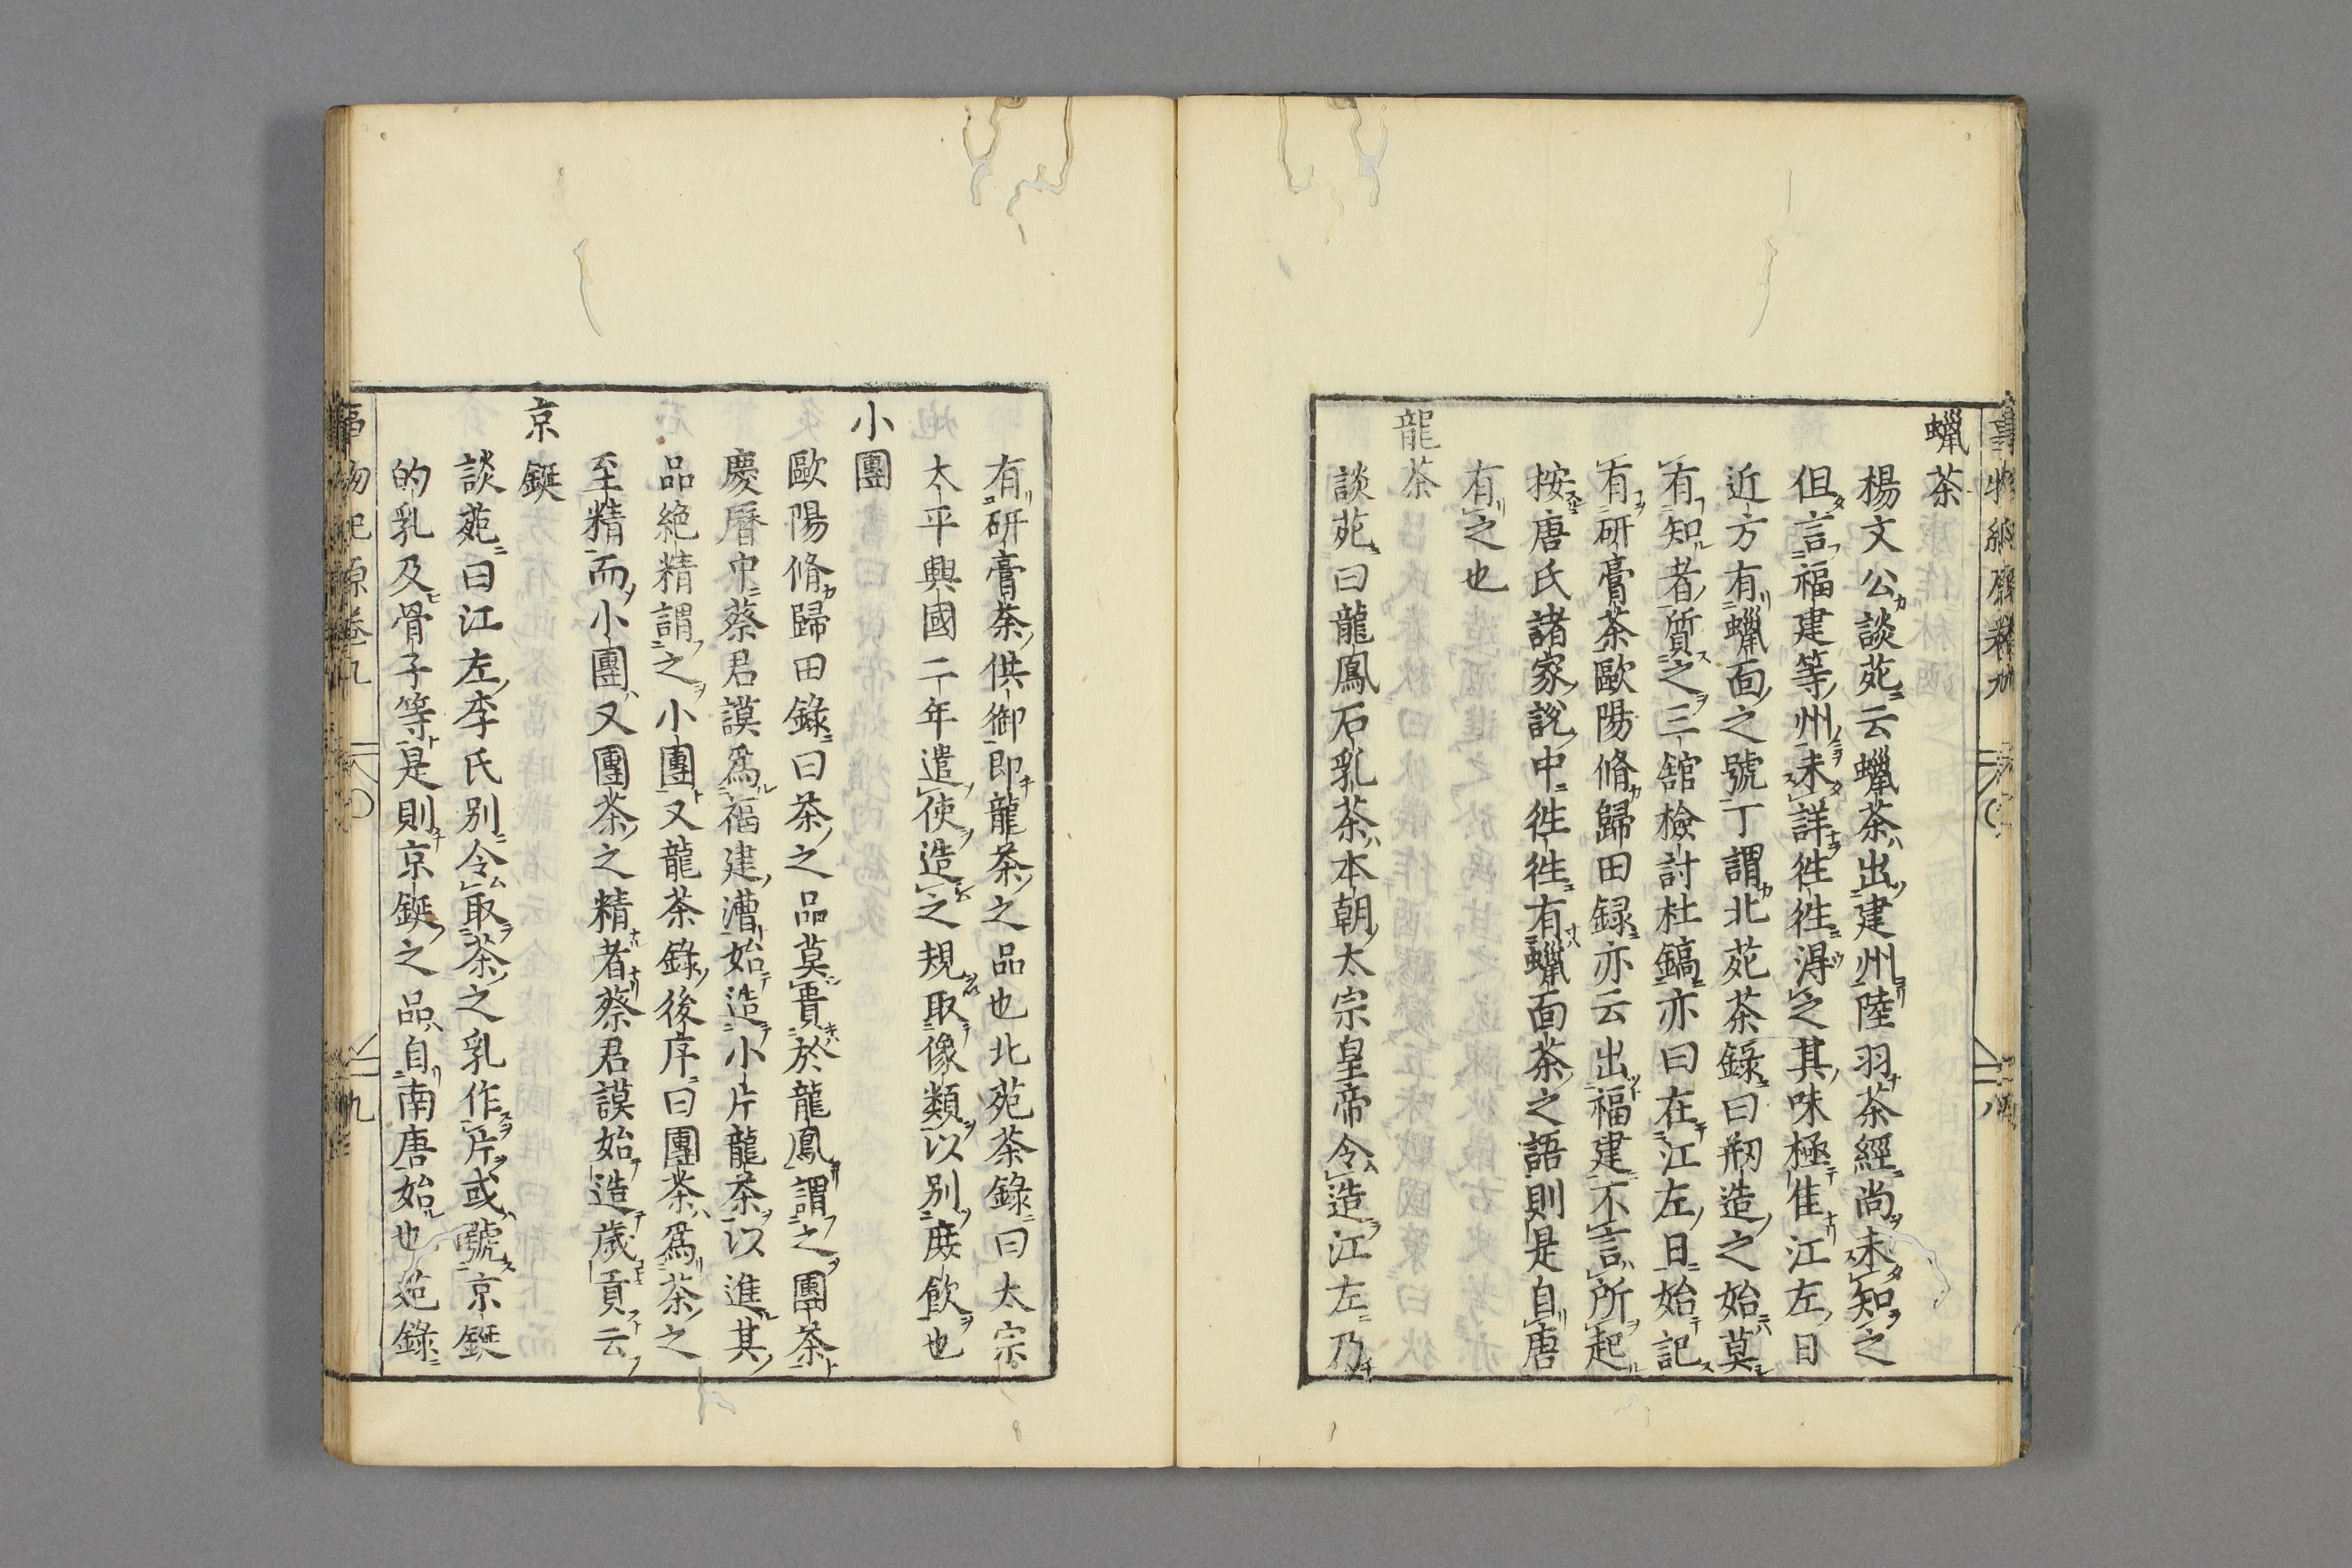 蠟茶
楊文公談苑云蠟茶出建州陸羽茶經尚未知之
但言福建等州未詳徃徃得之其味極佳江左日
近方有蠟面之號丁謂北苑茶錄曰剏造之始莫
有知者質之三舘檢討杜鎬亦曰在江左日始記
有研膏茶歐陽脩歸田録亦云出福建不言所起
按唐氏諸家說中徃徃有蠟面茶之語則是自唐
有之也
龍茶
談苑曰龍鳳石乳茶本朝太宗皇帝令造江左乃
有研膏茶供御即龍茶之品也北苑茶錄曰太宗
太平興國二年遣使造之規取像類以别庻飲也
小團
歐陽脩歸田錄曰茶之品莫貴於龍鳳謂之團茶
慶曆中蔡君謨爲福建漕始造小片龍茶以進其
品絶精謂之小團又龍茶錄後序曰團茶爲茶之
至精而小團又團茶之精者蔡君謨始造歲貢云
京鋌
談苑曰江左李氏别令取茶之乳作片或號京鋌
的乳及骨子等是則京鋌之品自南唐始也苑錄
事物紀原卷九
九